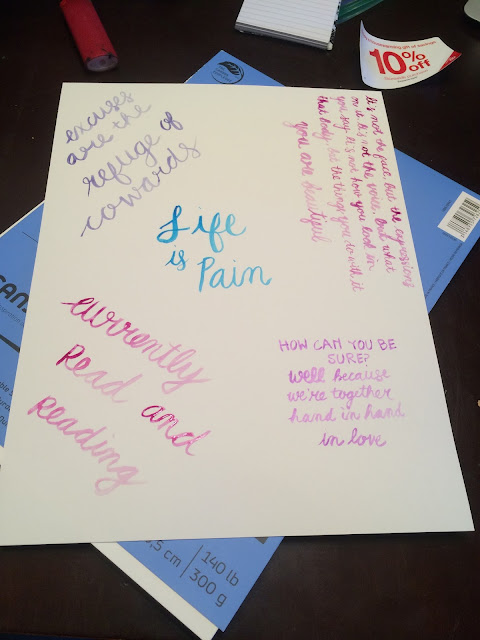 excuses
are the
refuge of
cowards
It's not the face. But the expressions
on it. It's not the voice. But what
you say. It's not how you look in
that body. but the things you do with it
you are beautiful
Life
is
Pain
currently
Read and
Reading
HOW CAN YOU BE
SURE?
Well Because
we're together
hand in hand
in love
10%
off
CANS
cm
140 lb
300 g